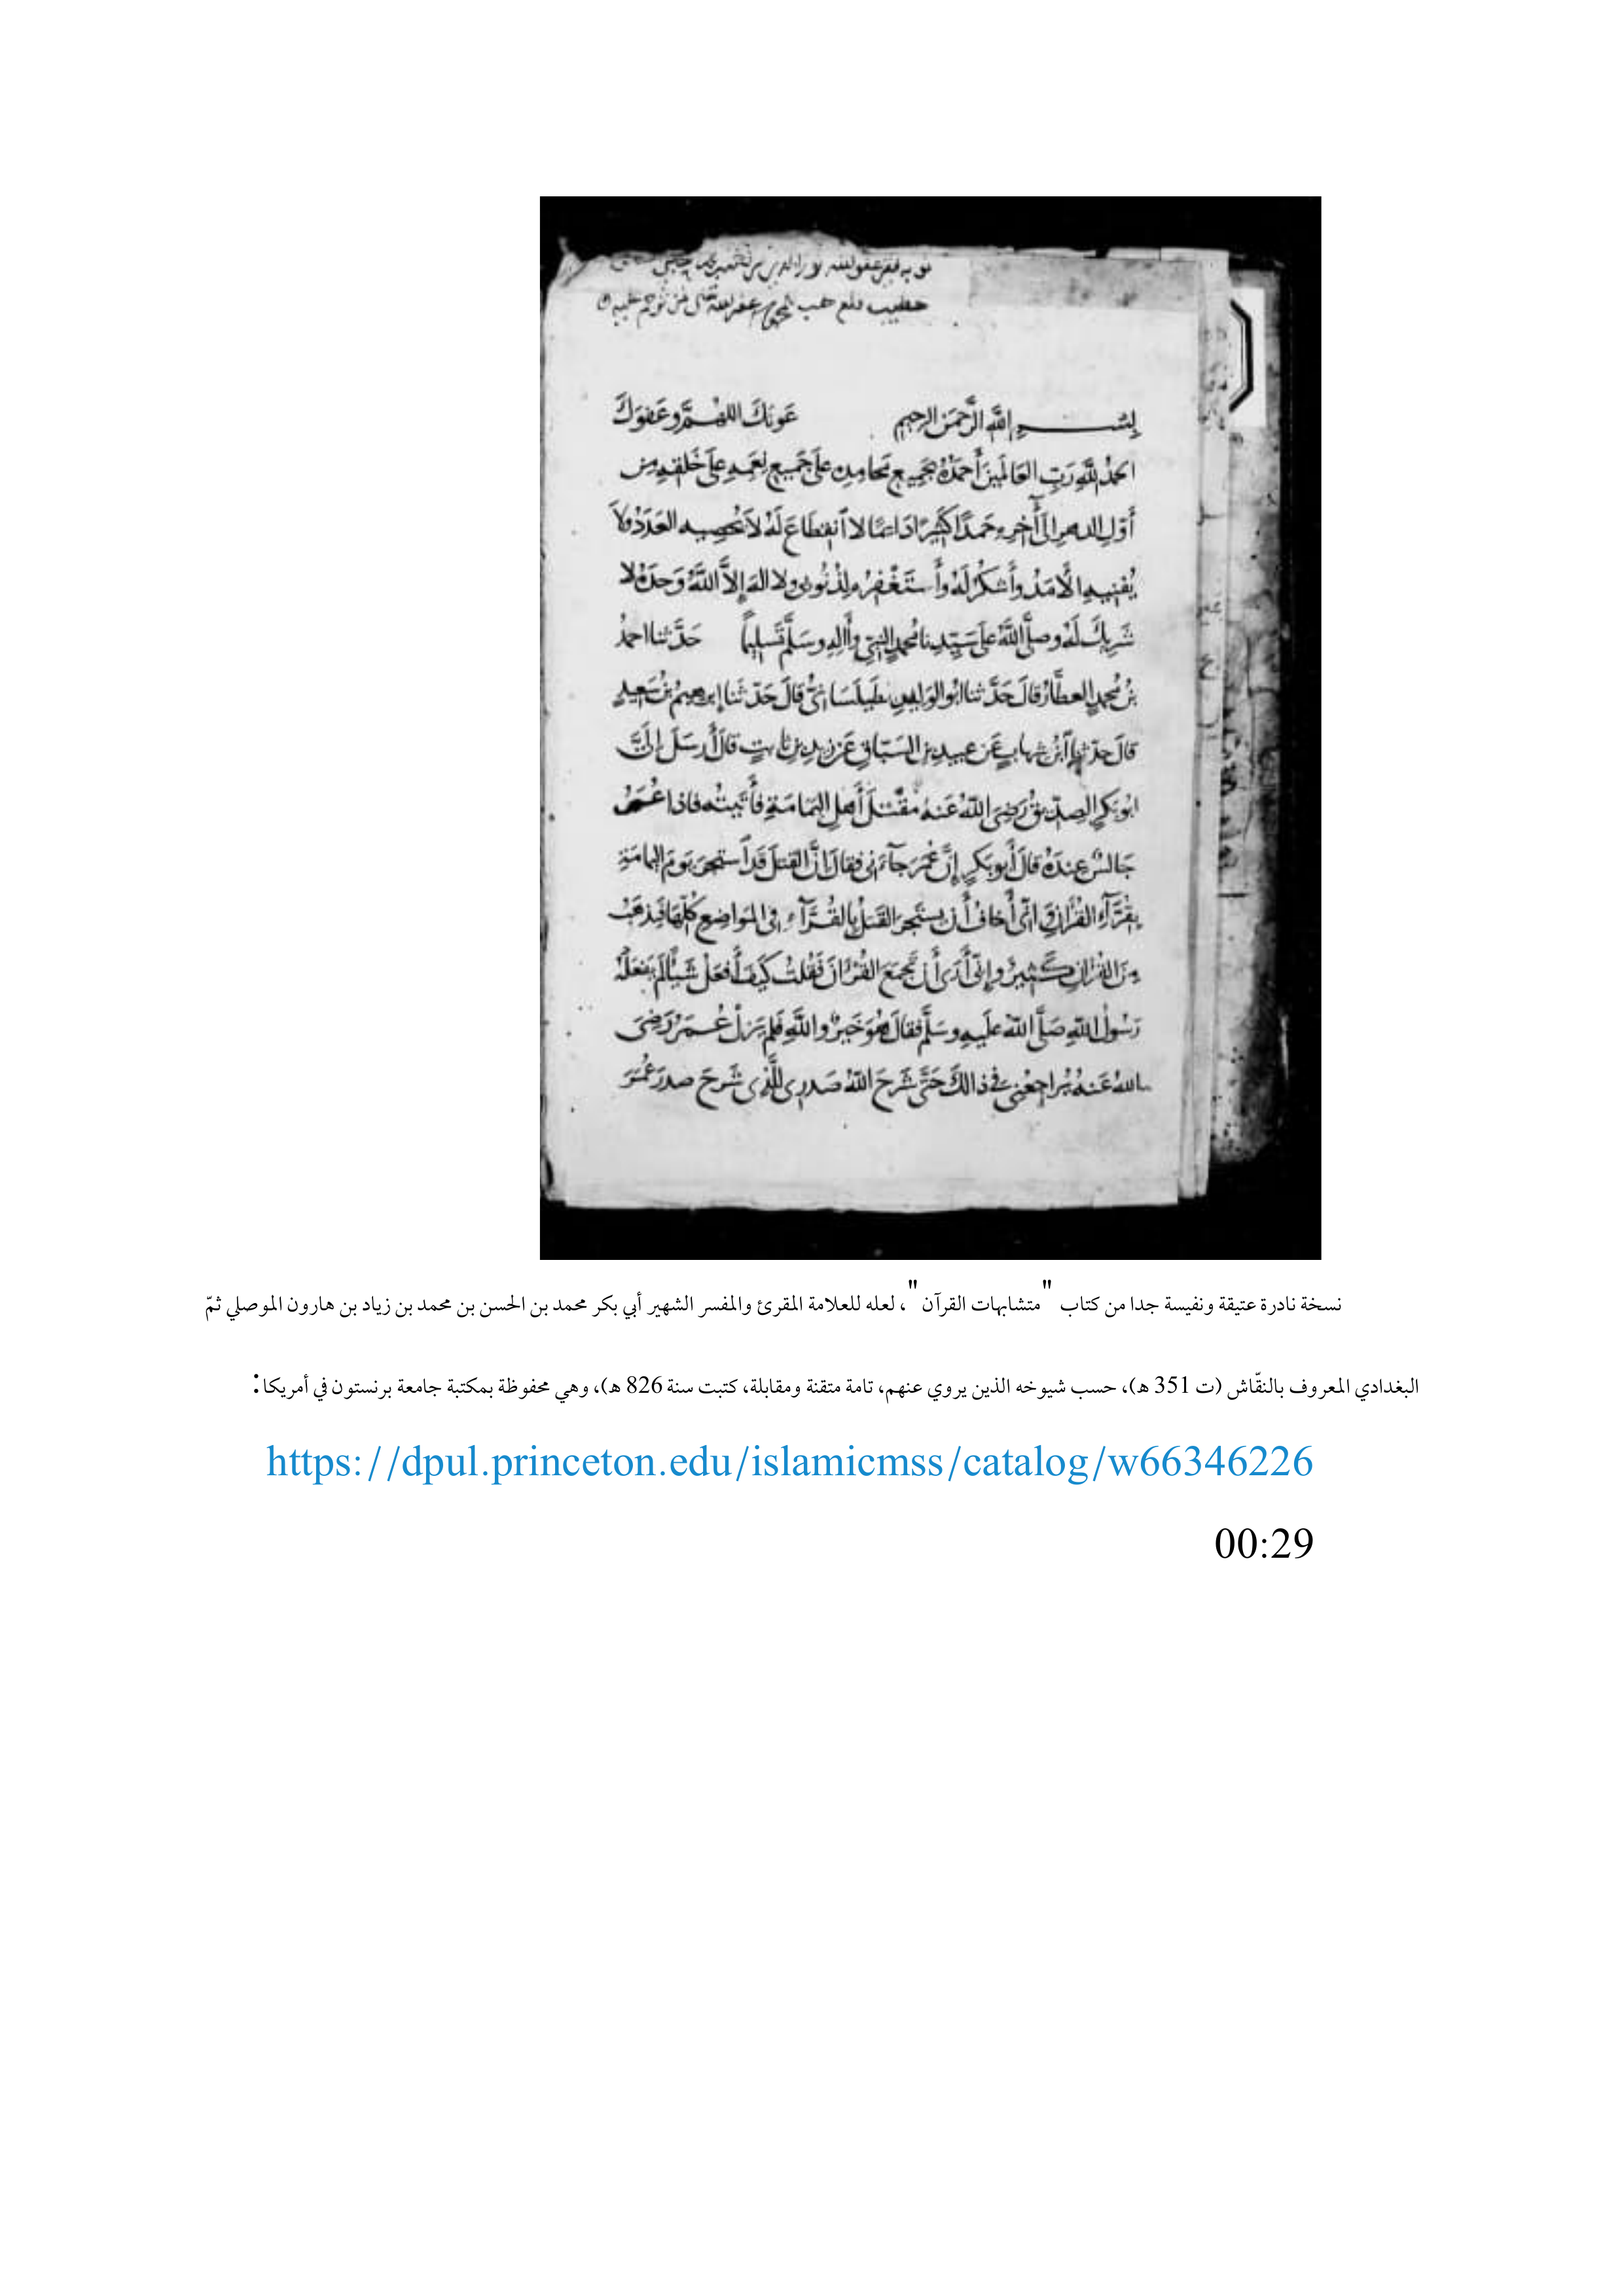 خطيب
بسم الله الرحمن الرحيم عَونَكَ اللهُمَّ وعَفوَكَ
الحمدُ للهِ رَبِّ العَالَمِينَ أَحمَدُهُ بِجَمِيعِ مَحامِدِه عَلَى جَمِيعِ نِعَمِهِ عَلَى خَلقِهِ مِن
أَوّلِ الدهرِ إلَى آخِرِهِ حَمدًا كَثِيرًا دَائمًا لا اَنقِطَاعَ لَهُ لاَ يُحصِيهِ العَدَدُ ولاَ
يُفنِيهِ الأَمَدُ وأَشكُرُ لَهُ وأَستَغفِرُه لِذُنُوبِى ولا اله إلاَّ اللهُ وَحدَهُ لا
شَرِيكَ لَهُ وصلَّى اللهُ عَلَى سَيِّدِنا مُحمدٍ النبِىّ وآلِهِ وسَلَّم تَسلِيمًا حَدَّثنا احمدُ
بنُ مُحمدٍ العطَّارُ قالَ حَدَّثنا ابُو الوَلِيدِ طَيَلَسَانىُّ قالَ حَدّثَنا إبرهيمُ بنُ سَعِيدٍ
قالَ حدّثنا اَبنُ شهابٍ عَن عبيدِ بنِ السَبّاقِ عَن زيدِ بنِ ثابتٍ قالَ أَرسَلَ إلَىَّ
ابُو بَكرٍ الصِدّيقُ رَضِىَ اللهُ عَنهُ مَقتَلَ أَهلِ اليَمَامَةِ فأَتَيتُه فاذا عُمَرُ
جَالسٌ عِندَهُ قالَ أبو بَكرٍ إنَّ عُمَرَ جآءَنى فقالَ انَّ القتلَ قَد اَستحرَ يَومَ اليمامَةِ
بِقُرَّآءِ القُرآنِ وَانّى أَخافُ أَن يستَحِرَ القَتلُ بِالقُرَّآءِ فِى المَواضِعِ كُلِّهَا فيَذهَبُ
مِنَ القُرانِ كَثِيرٌ وإنّى أَرَى أَن تَجمَعَ القُرانَ فَقُلتُ كَيفَ أَفعَلُ شَيئًا لَم يَفعَلهُ
رَسُولُ اللهِ صَلَّى اللهُ عَلَيهِ وسَلَّم فقالَ هُوَ خَيرٌ واللهِ فَلم يَزَل عُمَرُ رَضِىَ
اللهُ عَنهُ يُراجِعُنِى فى ذالكَ حَتَّى شَرحَ اللهُ صَدرِى للَّذِى شَرحَ صدرَ عُمَرَ
نسخة نادرة عتيقة ونفيسة جدا من كتاب "متشابهات القرآن"، لعله للعلامة المقرئ والمفسر الشهير أبي بكر محمد بن الحسن بن محمد بن زياد بن هارون الموصلي ثمّ
البغدادي المعروف بالنقّاش (ت 351 هـ)، حسب شيوخه الذين يروي عنهم، تامة متقنة ومقابلة، كتبت سنة 826 هـ)، وهي محفوظة بمكتبة جامعة برنستون في أمريكا:
https://dpul.princeton.edu/islamicmss/catalog/w66346226
00:29